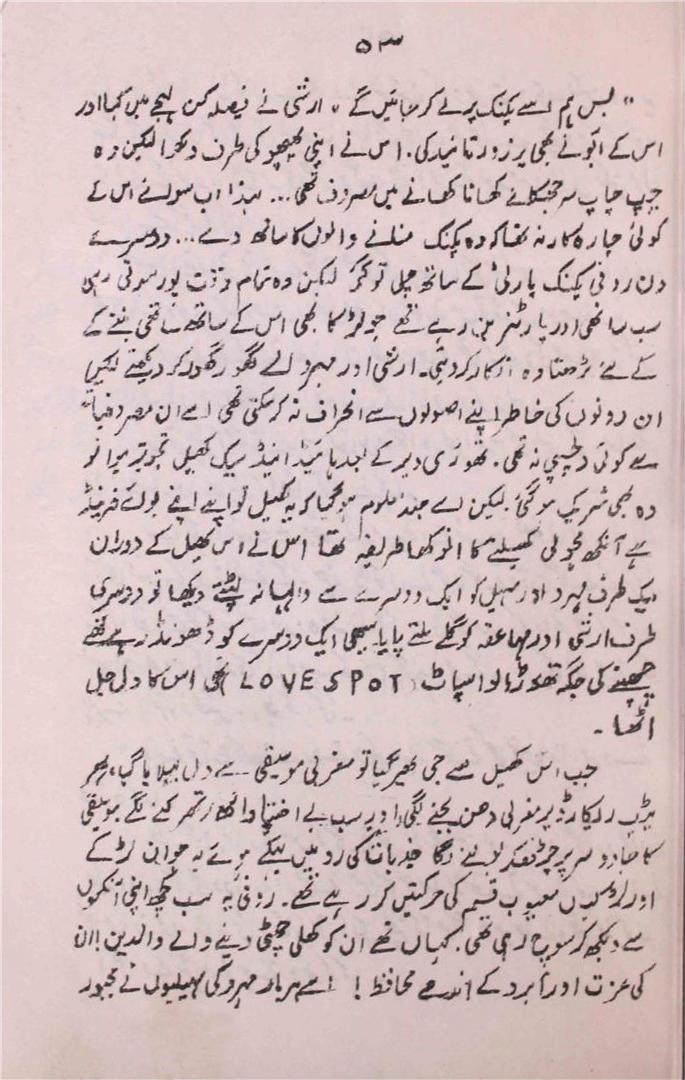 ۵۳
" بس ہم اسے پکنک پر لے کر جائیں گے " ارشی نے فیصلہ کن لہجے میں کہا اور
اس کے ابّو نے بھی پر زور تائید کی. اس نے اپنی پھپھو کی طرف دیکھا لیکن وہ
چپ چاپ سر جھکائے کھانا کھانے میں مصروف تھی... لہذا اب سوائے اس کے
کوئی چارہ کار نہ تھا کہ وہ پکنک منانے والوں کا ساتھ دے... دوسرے
دن روفی پکنک پارٹی کے ساتھ چل تو گئی لیکن وہ تمام وقت بور ہوتی رہی
سب ساتھی اور پارٹنر بن رہے تھے جو لڑکا بھی اس کے ساتھ ساتھی بننے کے
کے لئے بڑھتا وہ انکار کر دیتی۔ ارشی اور مہرو اسے گھور گھور کر دیکھتے لیکن
ان دونوں کی خاطر اپنے اصولوں سے انحراف نہ کر سکتی تھی اسے ان مصروفیات
سے کوئی دلچسپی نہ تھی. تھوڑی دیر کے بعد ہائیڈ اینڈ سیک کھیل تجویز ہوا تو
وہ بھی شریک ہو گئی. لیکن اسے جلد معلوم ہو گیا کہ یہ کھیل تو اپنے اپنے بوائے فرینڈ
سے آنکھ مچولی کھیلنے کا انوکھا طریقہ تھا اس نے اس کھیل کے دوران
ایک طرف مہرو اور سہیل کو ایک دوسرے سے والہانہ لپٹتے دیکھا تو دوسری
طرف ارشی اور کو گلے ملتے پایا سبھی ایک دوسرے کو ڈھونڈ رہے تھے
چھپنے کی جگہ تھوڑا لو اسپاٹ (LOVE SPOT) تھی اس کا دل جل
اٹھا۔
جب اس کھیل سے جی بھر گیا تو مغربی موسیقی سے دل بہلایا گیا، پھر
ٹیپ ریکارڈ پر مغربی دھن بجنے لگی اور سب بے اختیار اٹھ کر تھرکنے لگے موسیقی
کا جادو سر پر چڑھ کر بولنے لگا جذبات کی رو میں بہکے ہوئے یہ جوان لڑکے
اور لڑکیاں معیوب قسم کی حرکتیں کر رہے تھے۔ روفی یہ سب کچھ اپنی آنکھوں
سے دیکھ کر سوچ رہی تھی کہاں تھے ان کو کھلی چھٹی دینے والے والدین! ان
کی عزت اور آبرو کے اندھے محافظ! اسے ہر بار مہرو کی سہیلیوں نے مجبور